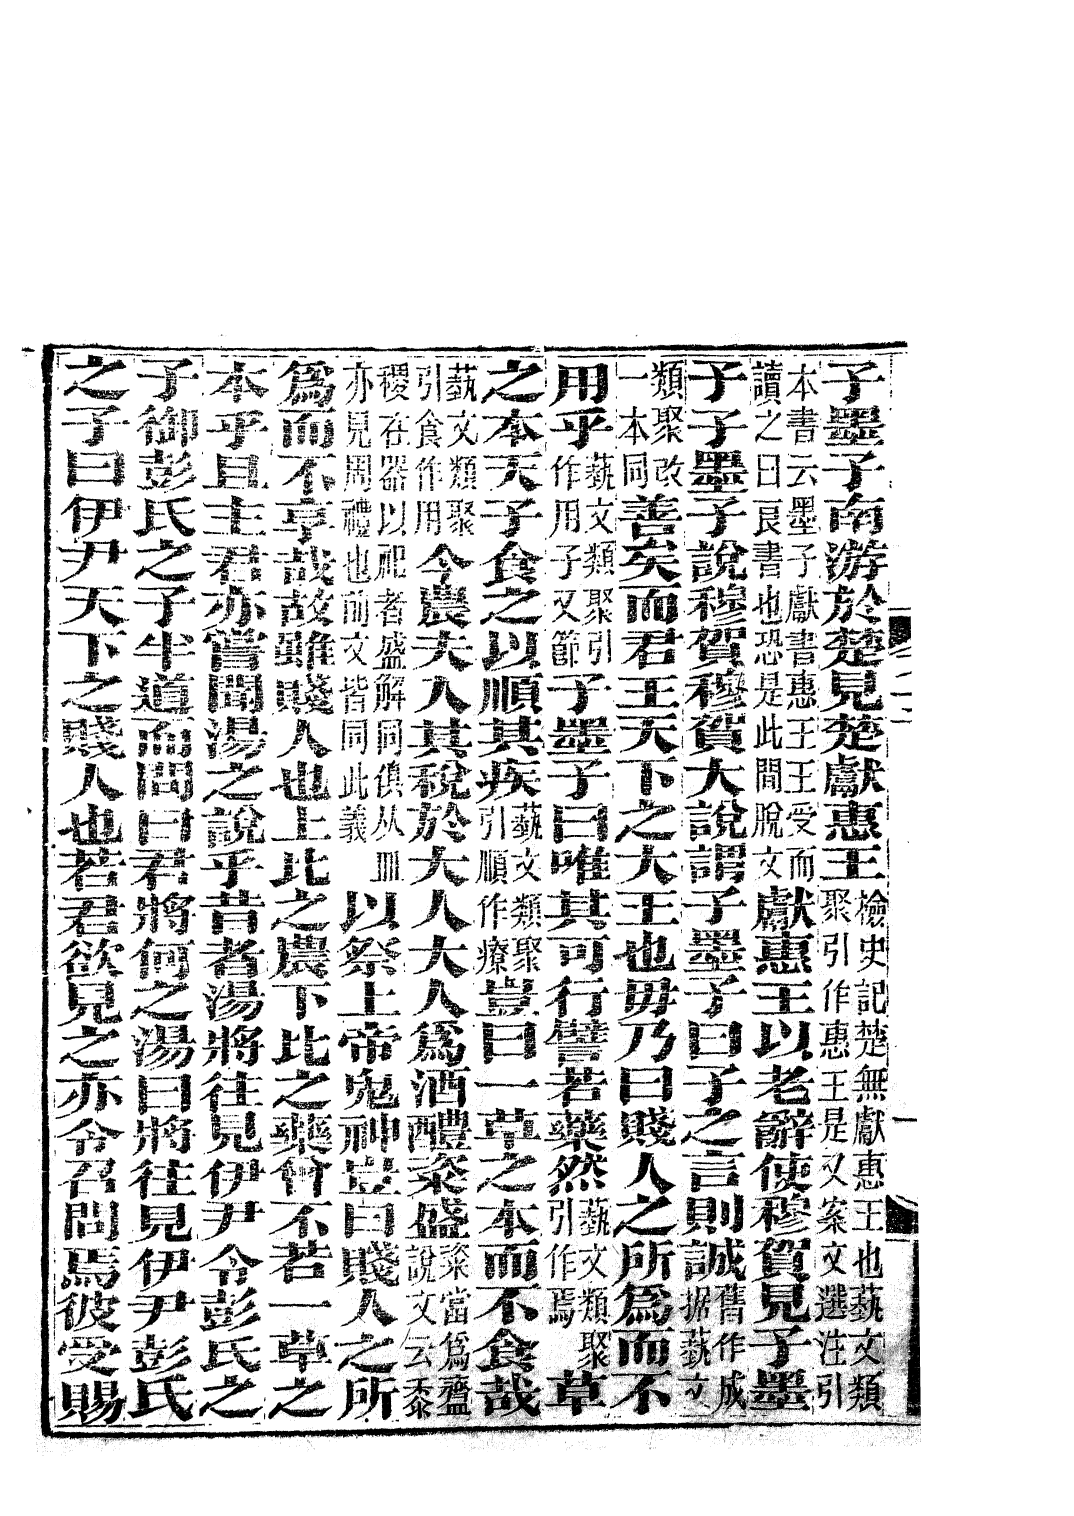 子墨子南游於楚見楚獻惠王檢史記楚無獻惠王也藝文類聚引作惠王是又案文選注引
本書云墨子獻書惠王王受而讀之曰良書也恐是此間脫文獻惠王以老辭使穆賀見子墨
子子墨子說穆賀穆賀大說謂子墨子曰子之言則誠舊作成据藝文
類聚改一本同善矣而君王天下之大王也毋乃曰賤人之所爲而不
用乎藝文類聚引作用子又節子墨子曰唯其可行譬若藥然藝文類聚引作焉草
之本天子食之以順其疾藝文類聚引順作療豈曰一草之本而不食哉
藝文類聚引食作用今農夫入其稅於大人大人爲酒醴粢盛粢當爲齍說文云黍
稷在器以祀者盛解同俱从皿亦見周禮也前文皆同此義以祭上帝鬼神豈曰賤人之所
爲而不享哉故雖賤人也上比之農下比之藥曾不若一草之
本乎且主君亦嘗聞湯之說乎昔者湯將往見伊尹令彭氏之
子御彭氏之子半道而問曰君將何之湯曰將往見伊尹彭氏
之子曰伊尹天下之賤人也若君欲見之亦令召問焉彼受賜